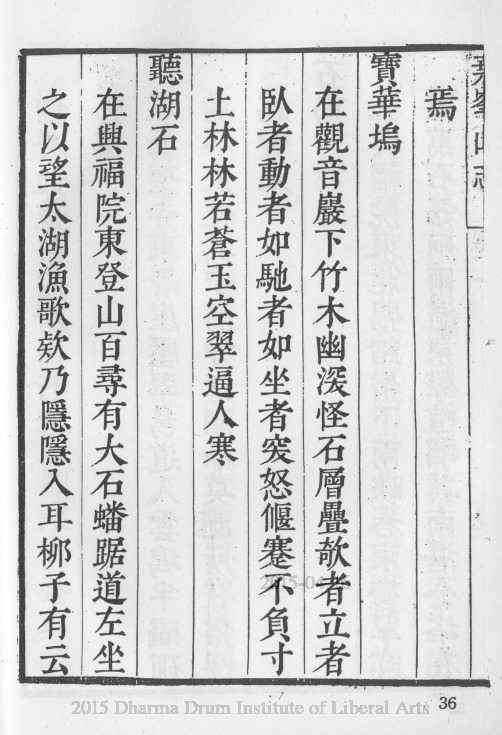 焉
寶華塢
在觀音巖下竹木幽深怪石層疊欹者立者
臥者動者如馳者如坐者突怒偃蹇不負寸
土林林若蒼玉空翠逼人寒
聽湖石
在興福院東登山百尋有大石蟠踞道左坐
之以望太湖漁歌欸乃隱隱入耳柳子有云
36
2015 Dharma Drum Institute of Liberal Arts